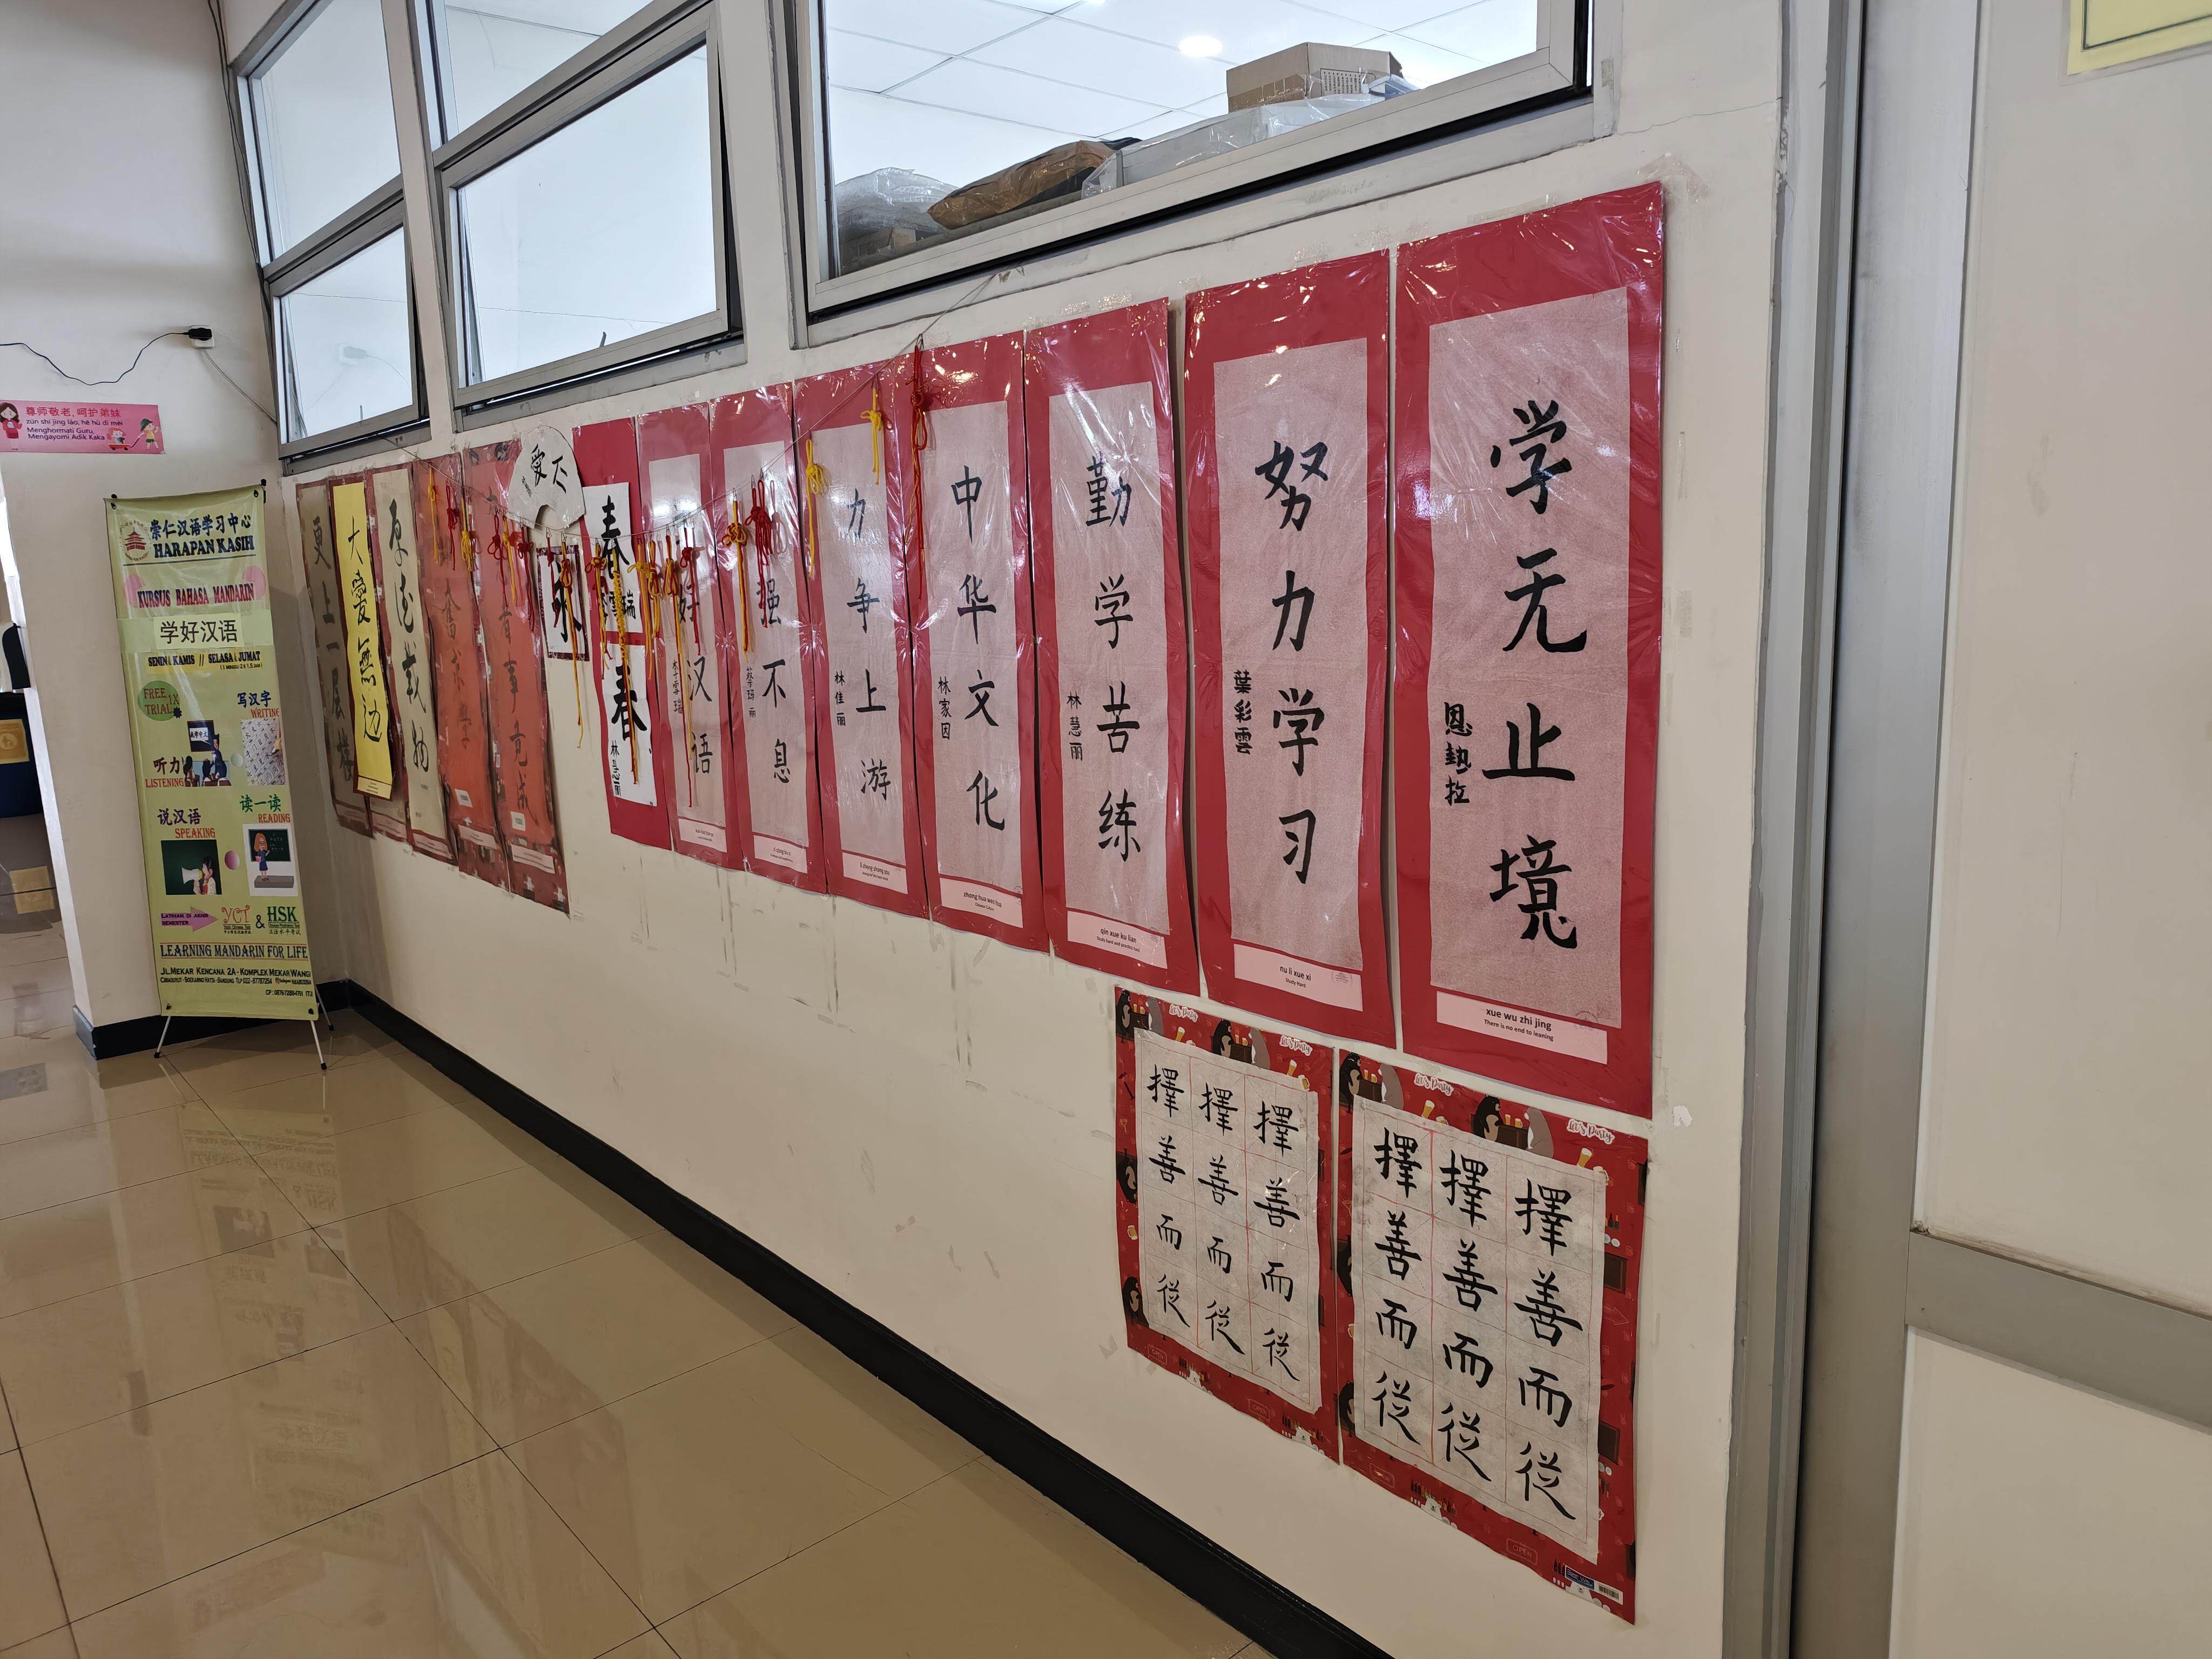 尊师敬老，呵护弟妹
zūn shī jìng lǎo, hē hù dì mèi
Menghormati Guru,
Mengayomi Adik Kaka
崇仁汉语学习中心
HARAPAN KASIH
KURSUS BAHASA MANDARIN
学好汉语
SENIN & KAMIS // SELASA & JUMAT
FREE 1X
TRIAL
写汉字
WRITING
听力
LISTENING
说汉语
SPEAKING
读一读
READING
LATIHAN DI AKHIR
SEMESTER
YCT & HSK
LEARNING MANDARIN FOR LIFE
JL.MEKAR KENCANA 2A - KOMPLEX MEKAR WANGI
更上一层楼
大愛無边
厚德载物
有志事竟成
永
春
春
林慧丽
好汉语
强不息
力争上游
林佳丽
li zheng shang you
中华文化
林家因
zhong hua wen hua
Chinese Culture
勤学苦练
林慧丽
qin xue ku lian
Study hard and practice hard
努力学习
葉彩雲
nu li xue xi
Study Hard
学无止境
恩勢拉
xue wu zhi jing
There is no end to leaning
Let's Party
Let's Party
擇善而從
擇善而從
擇善而從
Let's Party
Let's Party
擇善而從
擇善而從
擇善而從
OPEN